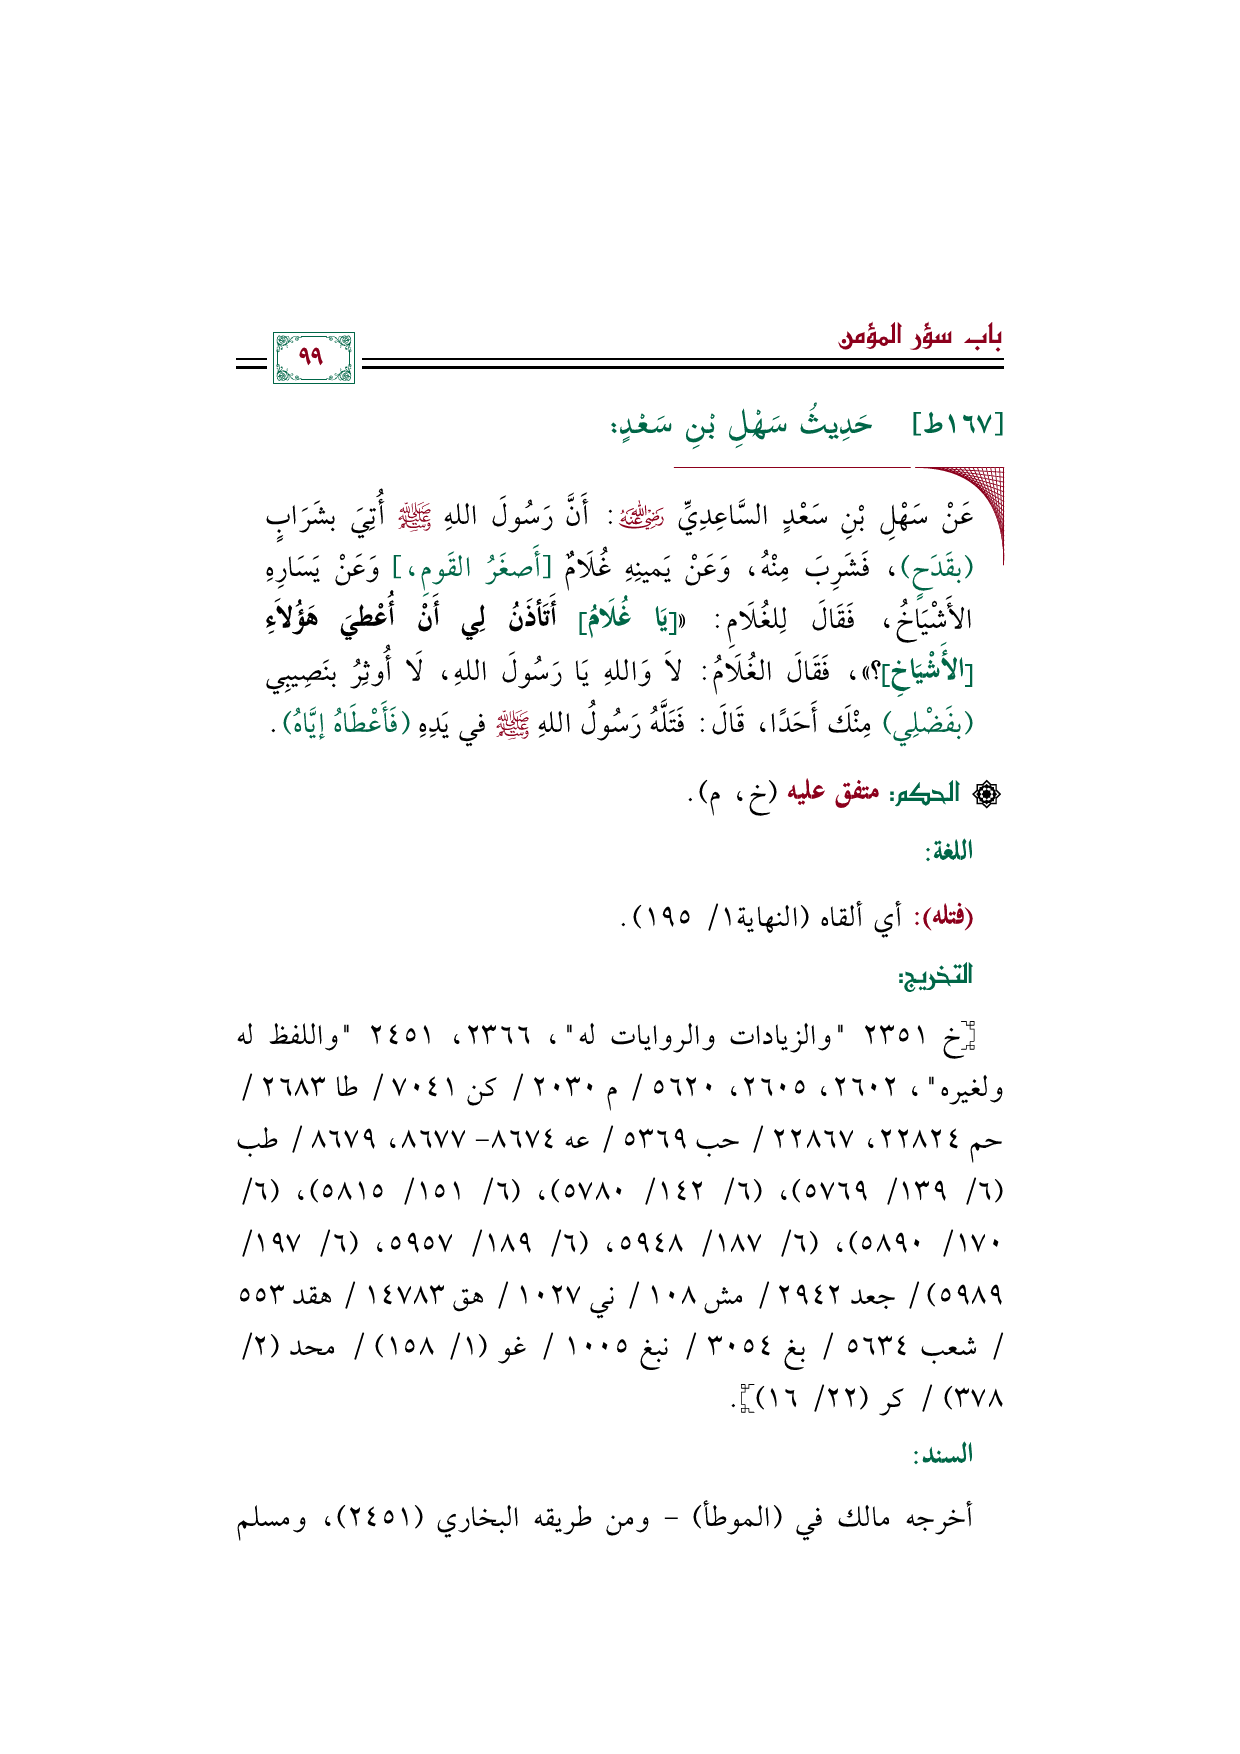 باب سؤر المؤمن
٩٩
[١٦٧ط] حَدِيثُ سَهْلِ بْنِ سَعْدٍ:
عَنْ سَهْلِ بْنِ سَعْدٍ السَّاعِدِيِّ رضي الله عنه: أَنَّ رَسُولَ اللهِ ﷺ أُتِيَ بشَرَابٍ
(بقَدَحٍ)، فَشَرِبَ مِنْهُ، وَعَنْ يَمينِهِ غُلَامٌ [أَصغَرُ القَومِ،] وَعَنْ يَسَارِهِ
الأَشْيَاخُ، فَقَالَ لِلغُلَامِ: «[يَا غُلَامُ] أَتَأذَنُ لِي أَنْ أُعْطيَ هَؤُلاَءِ
[الأَشْيَاخِ]؟»، فَقَالَ الغُلَامُ: لاَ وَاللهِ يَا رَسُولَ اللهِ، لَا أُوثِرُ بنَصِيبِي
(بفَضْلِي) مِنْكَ أَحَدًا، قَالَ: فَتَلَّهُ رَسُولُ اللهِ ﷺ في يَدِهِ (فَأَعْطَاهُ إيَّاهُ).
الحكم: متفق عليه (خ، م).
اللغة:
(فتله): أي ألقاه (النهاية١/ ١٩٥).
التخريج:
[خ ٢٣٥١ "والزيادات والروايات له"، ٢٣٦٦، ٢٤٥١ "واللفظ له
ولغيره"، ٢٦٠٢، ٢٦٠٥، ٥٦٢٠ / م ٢٠٣٠ / كن ٧٠٤١ / طا ٢٦٨٣ /
حم ٢٢٨٢٤، ٢٢٨٦٧ / حب ٥٣٦٩ / عه ٨٦٧٤– ٨٦٧٧، ٨٦٧٩ / طب
(٦/ ١٣٩/ ٥٧٦٩)، (٦/ ١٤٢/ ٥٧٨٠)، (٦/ ١٥١/ ٥٨١٥)، (٦/
١٧٠/ ٥٨٩٠)، (٦/ ١٨٧/ ٥٩٤٨، (٦/ ١٨٩/ ٥٩٥٧، (٦/ ١٩٧/
٥٩٨٩) / جعد ٢٩٤٢ / مش ١٠٨ / ني ١٠٢٧ / هق ١٤٧٨٣ / هقد ٥٥٣
/ شعب ٥٦٣٤ / بغ ٣٠٥٤ / نبغ ١٠٠٥ / غو (١/ ١٥٨) / محد (٢/
٣٧٨) / كر (٢٢/ ١٦)].
السند:
أخرجه مالك في (الموطأ) – ومن طريقه البخاري (٢٤٥١)، ومسلم